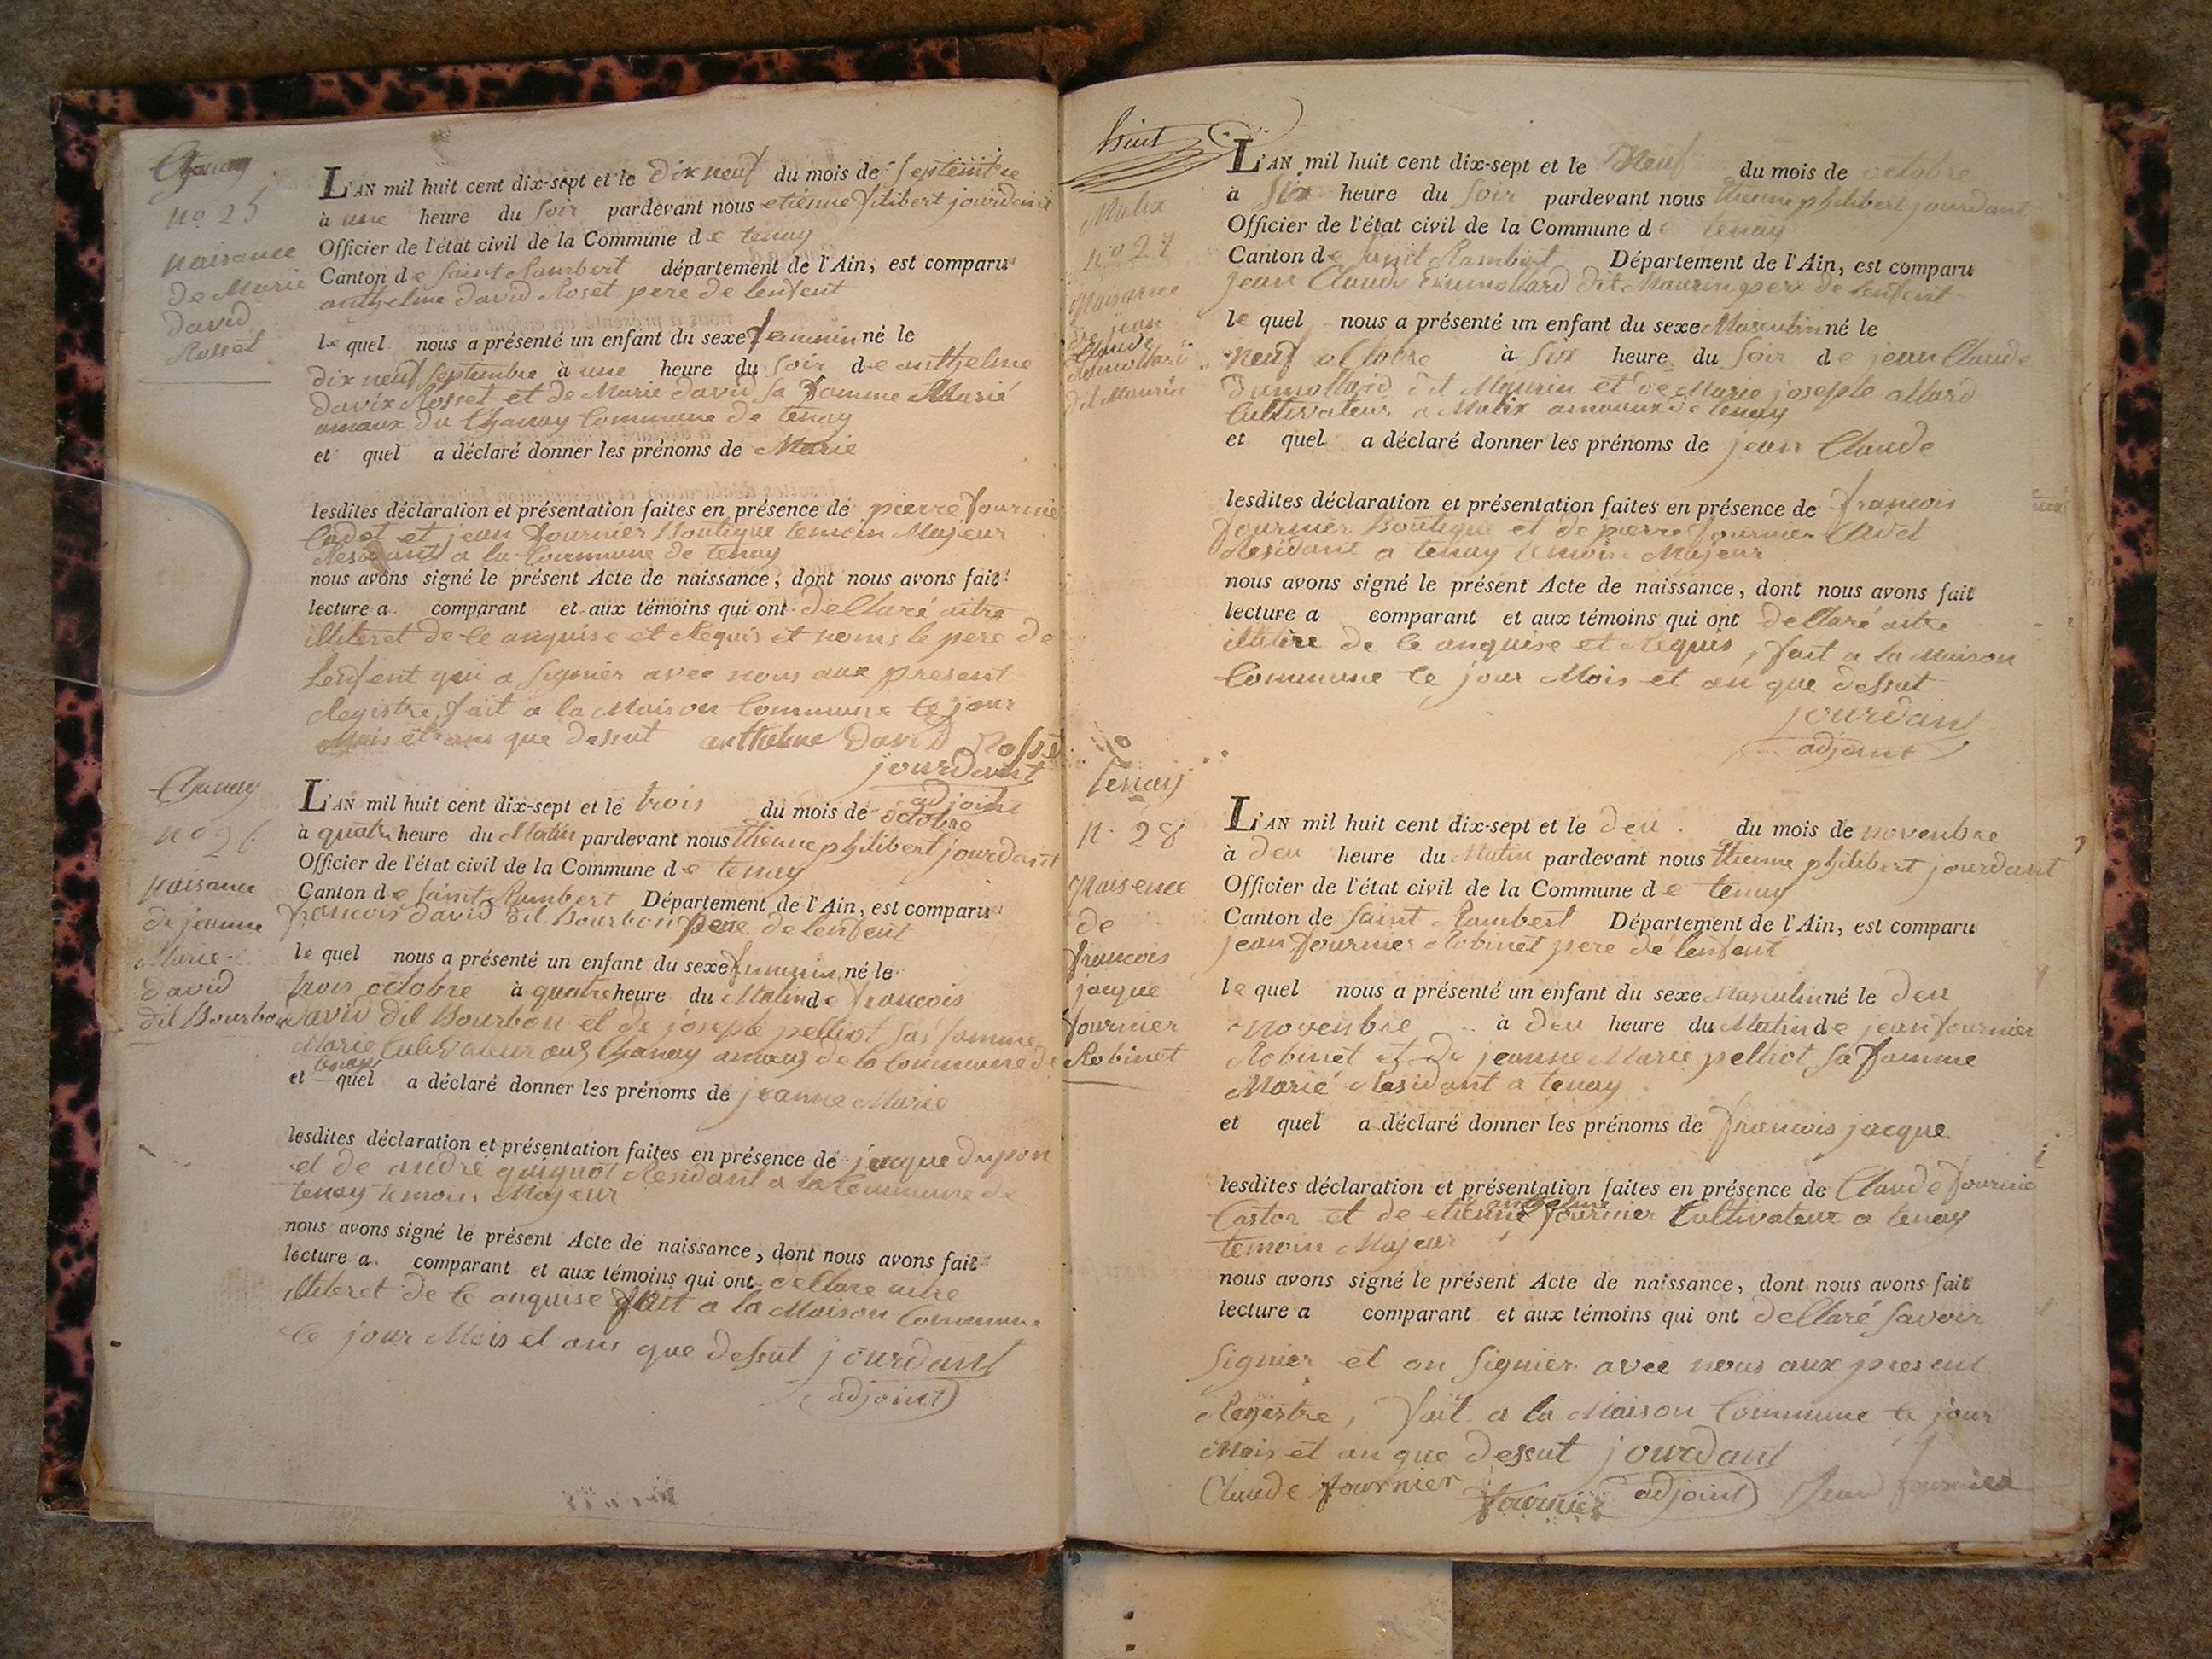 Chanay
no 25
naisance
de Marie
david
Rosset
L'AN mil huit cent dix-sept et le dix neuf du mois de Septembre
à une heure du Soir pardevant nous etienne filibert jourdant
Officier de l'état civil de la Commune de tenay
Canton de Saint Rambert département de l'Ain, est comparu
anthelme david Roset pere de lenfent
le quel nous a présenté un enfant du sexe feminin né le
dix neuf Septembre à une heure du Soir de anthelme
david Rosset et de Marie david sa famme Marié
amaux du Chanay Commune de tenay
et quel a déclaré donner les prénoms de Marie
lesdites déclaration et présentation faites en présence de pierre fournie
Cadet et jean fournier Boutique temoin Majeur
Residant a la Commune de tenay
nous avons signé le présent Acte de naissance, dont nous avons fait
lecture a comparant et aux témoins qui ont dellaré aitre
illiteret de ce anquise et Requis et noms le pere de
Lenfent qui a Signier avec nous aux present
Registre, fait a la Maison Commune le jour
Mois et ans que dessut anthelme David Rosset
jourdant
adjoint
Chanay
no 26
naisance
de jeanne
Marie
david
dit Bourbon
L'AN mil huit cent dix-sept et le trois du mois de octobre
à quatre heure du Matin pardevant nous Etienne philibert jourdant
Officier de l'état civil de la Commune de tenay
Canton de Saint Rambert Département de l'Ain, est comparu
francois david dit Bourbon pere de lenfent
le quel nous a présenté un enfant du sexe feminin né le
trois octobre à quatre heure du Matin de francois
david dit Bourbon et de josepte pelliot sas famme
Marie Cultivateur aux Chanay amaus de la Commune de
tenay
et quel a déclaré donner les prénoms de jeanne Marie
lesdites déclaration et présentation faites en présence de jacque dupon
et de andré guignot Residant a la Commune de
tenay temoin Majeur
nous avons signé le présent Acte de naissance, dont nous avons fait
lecture a comparant et aux témoins qui ont dellare aitre
illiteret de ce anquise fait a la Maison Commune
le jour Mois et ans que dessut jourdant
adjoint
huit
Malix
no 27
Naisance
de jean
Claude
dumollard
dit Maurin
L'AN mil huit cent dix-sept et le Neuf du mois de octobre
à Six heure du Soir pardevant nous Etienne philibert jourdant
Officier de l'état civil de la Commune de tenay
Canton de Saint Rambert Département de l'Ain, est comparu
jean Claude Dumollard dit Maurin pere de lenfent
le quel nous a présenté un enfant du sexe Masculin né le
neuf octobre à Six heure du Soir de jean Claude
Dumollard dit Maurin et de Marie josepte allard
Cultivateur a Malix amaux de tenay
et quel a déclaré donner les prénoms de jean Claude
lesdites déclaration et présentation faites en présence de francois
fournier Boutique et de pierre fournier Cadet
Residant a tenay temoin Majeur
nous avons signé le présent Acte de naissance, dont nous avons fait
lecture a comparant et aux témoins qui ont dellaré aitre
de ce anquise et Requis, fait a la Maison
Commune le jour Mois et an que dessut
jourdant
adjoint
tenay
n. 28
Naisence
de
francois
jacque
fournier
Robinet
L'AN mil huit cent dix-sept et le deu du mois de novembre
à deu heure du Matin pardevant nous Etienne philibert jourdant
Officier de l'état civil de la Commune de tenay
Canton de Saint Rambert Département de l'Ain, est comparu
jean fournier Robinet pere de lenfent
le quel nous a présenté un enfant du sexe Masculin né le deu
novembre à deu heure du Matin de jean fournier
Robinet et de jeanne Marie pelliot sa famme
Marié Residant a tenay
et quel a déclaré donner les prénoms de francois jacque
lesdites déclaration et présentation faites en présence de Claude fournie
anthelme
Castor et de etienne fournier Cultivateur a tenay
temoin Majeur
nous avons signé le présent Acte de naissance, dont nous avons fait
lecture a comparant et aux témoins qui ont dellaré Savoir
Signier et on Signier avec nous aux present
Registre, fait a la Maison Commune le jour
Mois et an que dessut jourdant
Claude fournier fournier adjoint Jean fournier